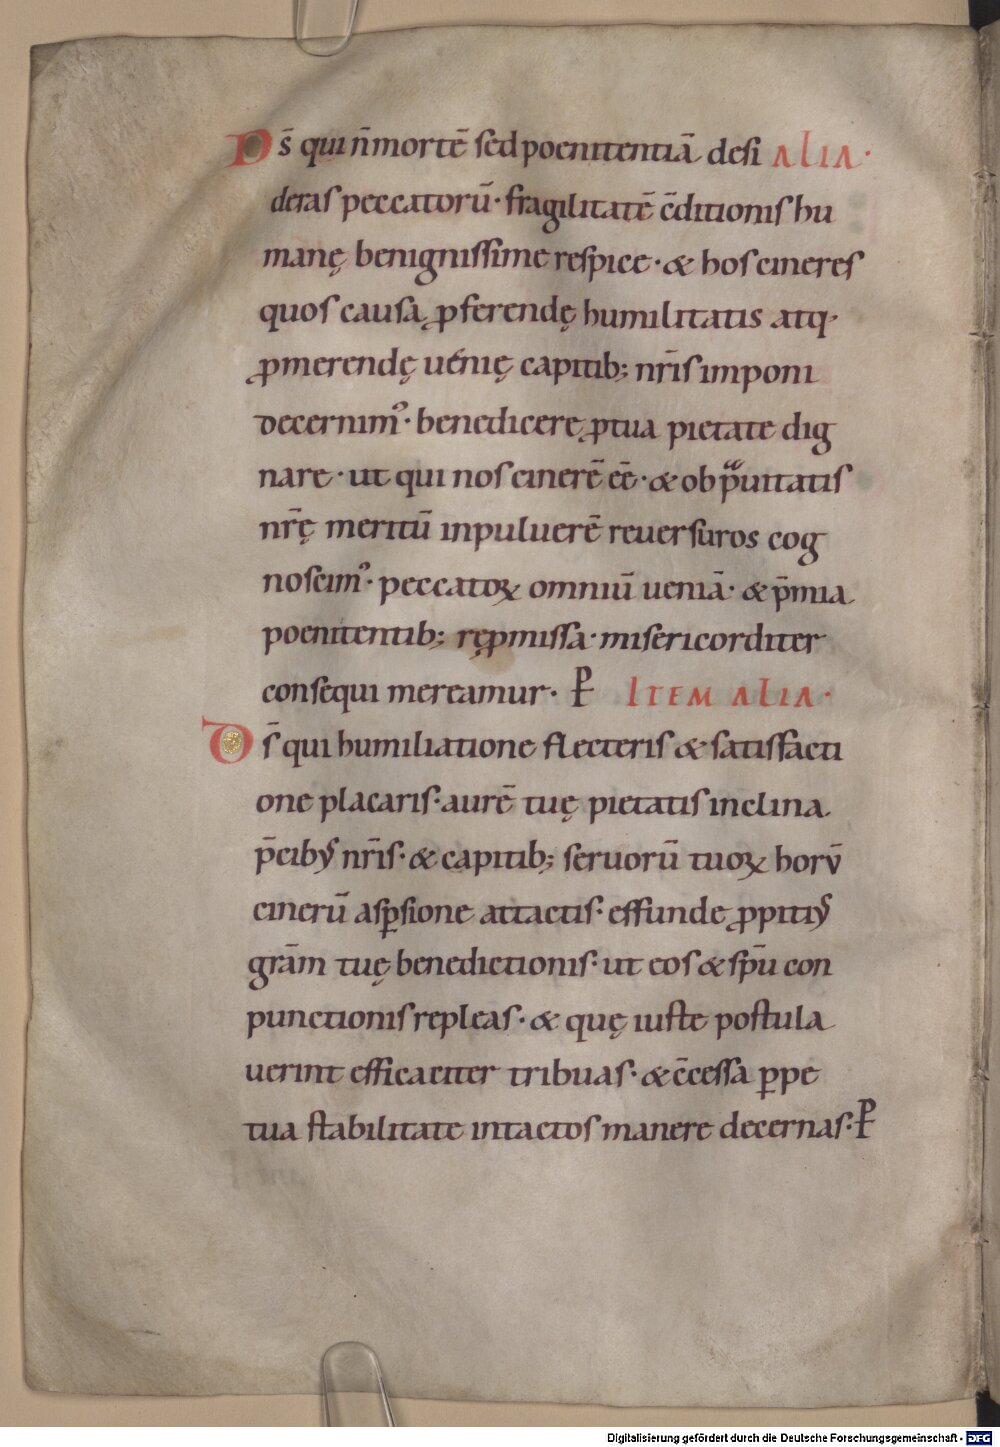 Ds̄ qui n̄ mortē sed poenitentiā desi ALIA·
deras peccatorū· fragilitatē c̄ditionis hu
manę benignissime respice· & hos cineres
quos causa ꝓferendę humilitatis atq·
ꝓmerendę uénię capitib; nr̄is imponi
decernim᾿· benedicere ꝓ tua pietate dig
nare· ut qui nos cinerē eē· & ob p̄uitatis
nr̄ę meritū in puluerē reuersuros cog
noscim᾿· peccatoꝝ omniū ueniā· & p̄mia
poenitentib; ręꝓmissa· misericorditer
consequi mereamur· P ITEM ALIA·
Ds̄ qui humiliatione flecteris & satisfacti
one placaris· aurē tuę pietatis inclina
p̄cibus nr̄is· & capitib; seruorū tuoꝝ horv̄
cinerū asꝑsione attactis· effunde ꝓpitiꝰ
grām tuę benedictionis· ut eos & sp̄u con
punctionis repleas· & quę iuste postula
uerint efficaciter tribuas· & c̄cessa ꝑpe
tua stabilitate intactos manere decernas· P
Digitalisierung gefördert durch die Deutsche Forschungsgemeinschaft - DFG